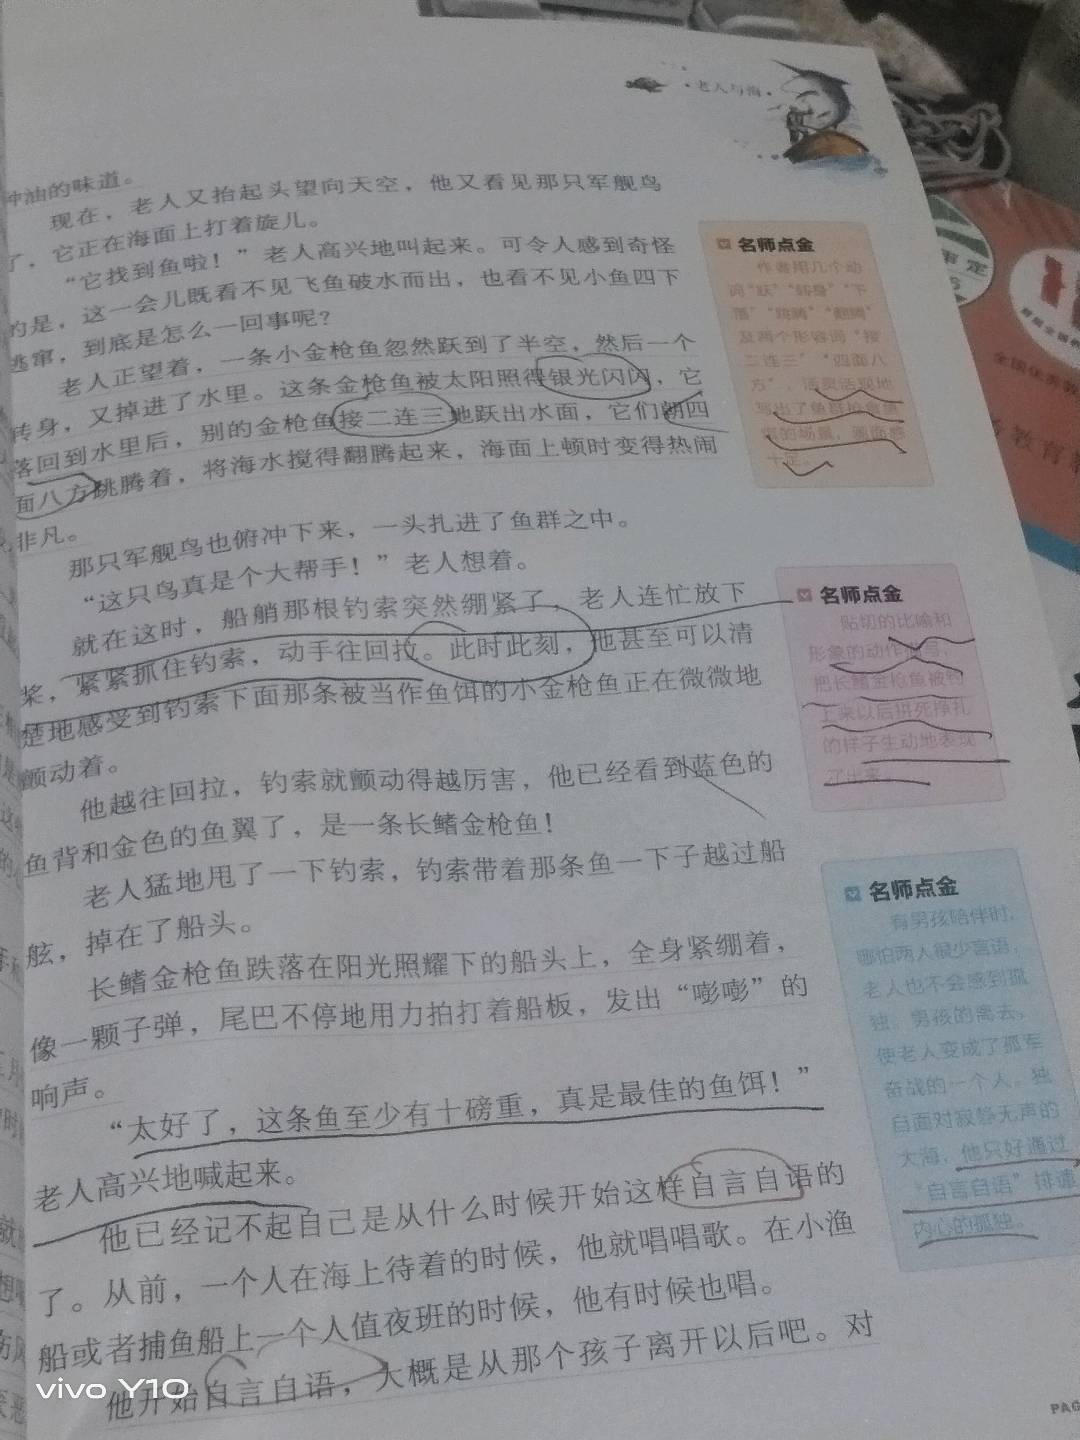 老人与海
种油的味道。
现在，老人又抬起头望向天空，他又看见那只军舰鸟
了，它正在海面上打着旋儿。
“它找到鱼啦！”老人高兴地叫起来。可令人感到奇怪
的是，这一会儿既看不见飞鱼破水而出，也看不见小鱼四下
逃窜，到底是怎么一回事呢？
老人正望着，一条小金枪鱼忽然跃到了半空，然后一个
转身，又掉进了水里。这条金枪鱼被太阳照得银光闪闪，它
落回到水里后，别的金枪鱼接二连三地跃出水面，它们朝四
面八方跳腾着，将海水搅得翻腾起来，海面上顿时变得热闹
非凡。
那只军舰鸟也俯冲下来，一头扎进了鱼群之中。
“这只鸟真是个大帮手！”老人想着。
就在这时，船艄那根钓索突然绷紧了，老人连忙放下
桨，紧紧抓住钓索，动手往回拉。此时此刻，他甚至可以清
楚地感受到钓索下面那条被当作鱼饵的小金枪鱼正在微微地
颤动着。
他越往回拉，钓索就颤动得越厉害，他已经看到蓝色的
鱼背和金色的鱼翼了，是一条长鳍金枪鱼！
老人猛地甩了一下钓索，钓索带着那条鱼一下子越过船
舷，掉在了船头。
长鳍金枪鱼跌落在阳光照耀下的船头上，全身紧绷着，
像一颗子弹，尾巴不停地用力拍打着船板，发出“嘭嘭”的
响声。
“太好了，这条鱼至少有十磅重，真是最佳的鱼饵！”
老人高兴地喊起来。
他已经记不起自己是从什么时候开始这样自言自语的
了。从前，一个人在海上待着的时候，他就唱唱歌。在小渔
船或者捕鱼船上一个人值夜班的时候，他有时候也唱。
他开始自言自语，大概是从那个孩子离开以后吧。对
名师点金
作者用几个动
词“跃”“转身”“下
落”“跳腾”“翻腾”
及两个形容词“接
二连三”“四面八
方”，活灵活现地
写出了鱼群
的场景，画面感
十足。
名师点金
贴切的比喻和
形象的动作描写，
把长鳍金枪鱼被钓
上来以后拼死挣扎
的样子生动地表现
了出来。
名师点金
有男孩陪伴时，
哪怕两人很少言语，
老人也不会感到孤
独。男孩的离去，
使老人变成了孤军
奋战的一个人。独
自面对寂静无声的
大海，他只好通过
“自言自语”排遣
内心的孤独。
PAG
审定
全国优秀教
教育
vivo Y10